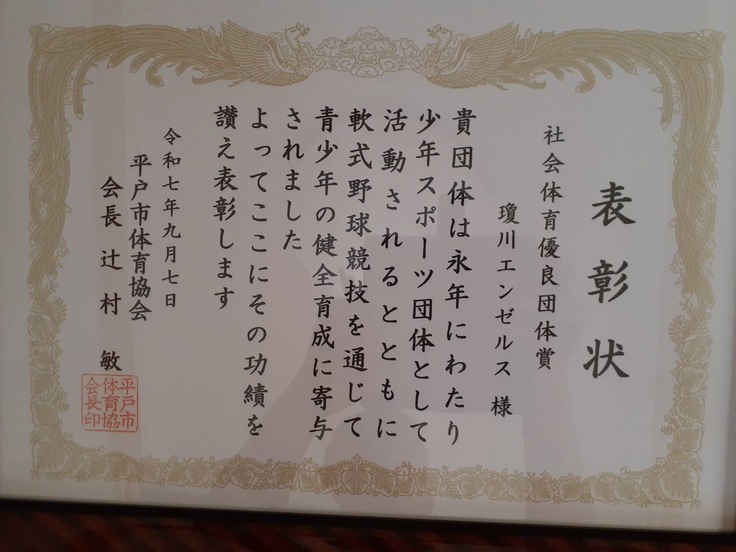 表彰状
社会体育優良団体賞
瓊川エンゼルス 様
貴団体は永年にわたり
少年スポーツ団体として
活動されるとともに
軟式野球競技を通じて
青少年の健全育成に寄与
されました
よってここにその功績を
讃え表彰します
令和七年九月七日
平戸市体育協会
会長 辻村 敏
平戸市
体育協
会長印